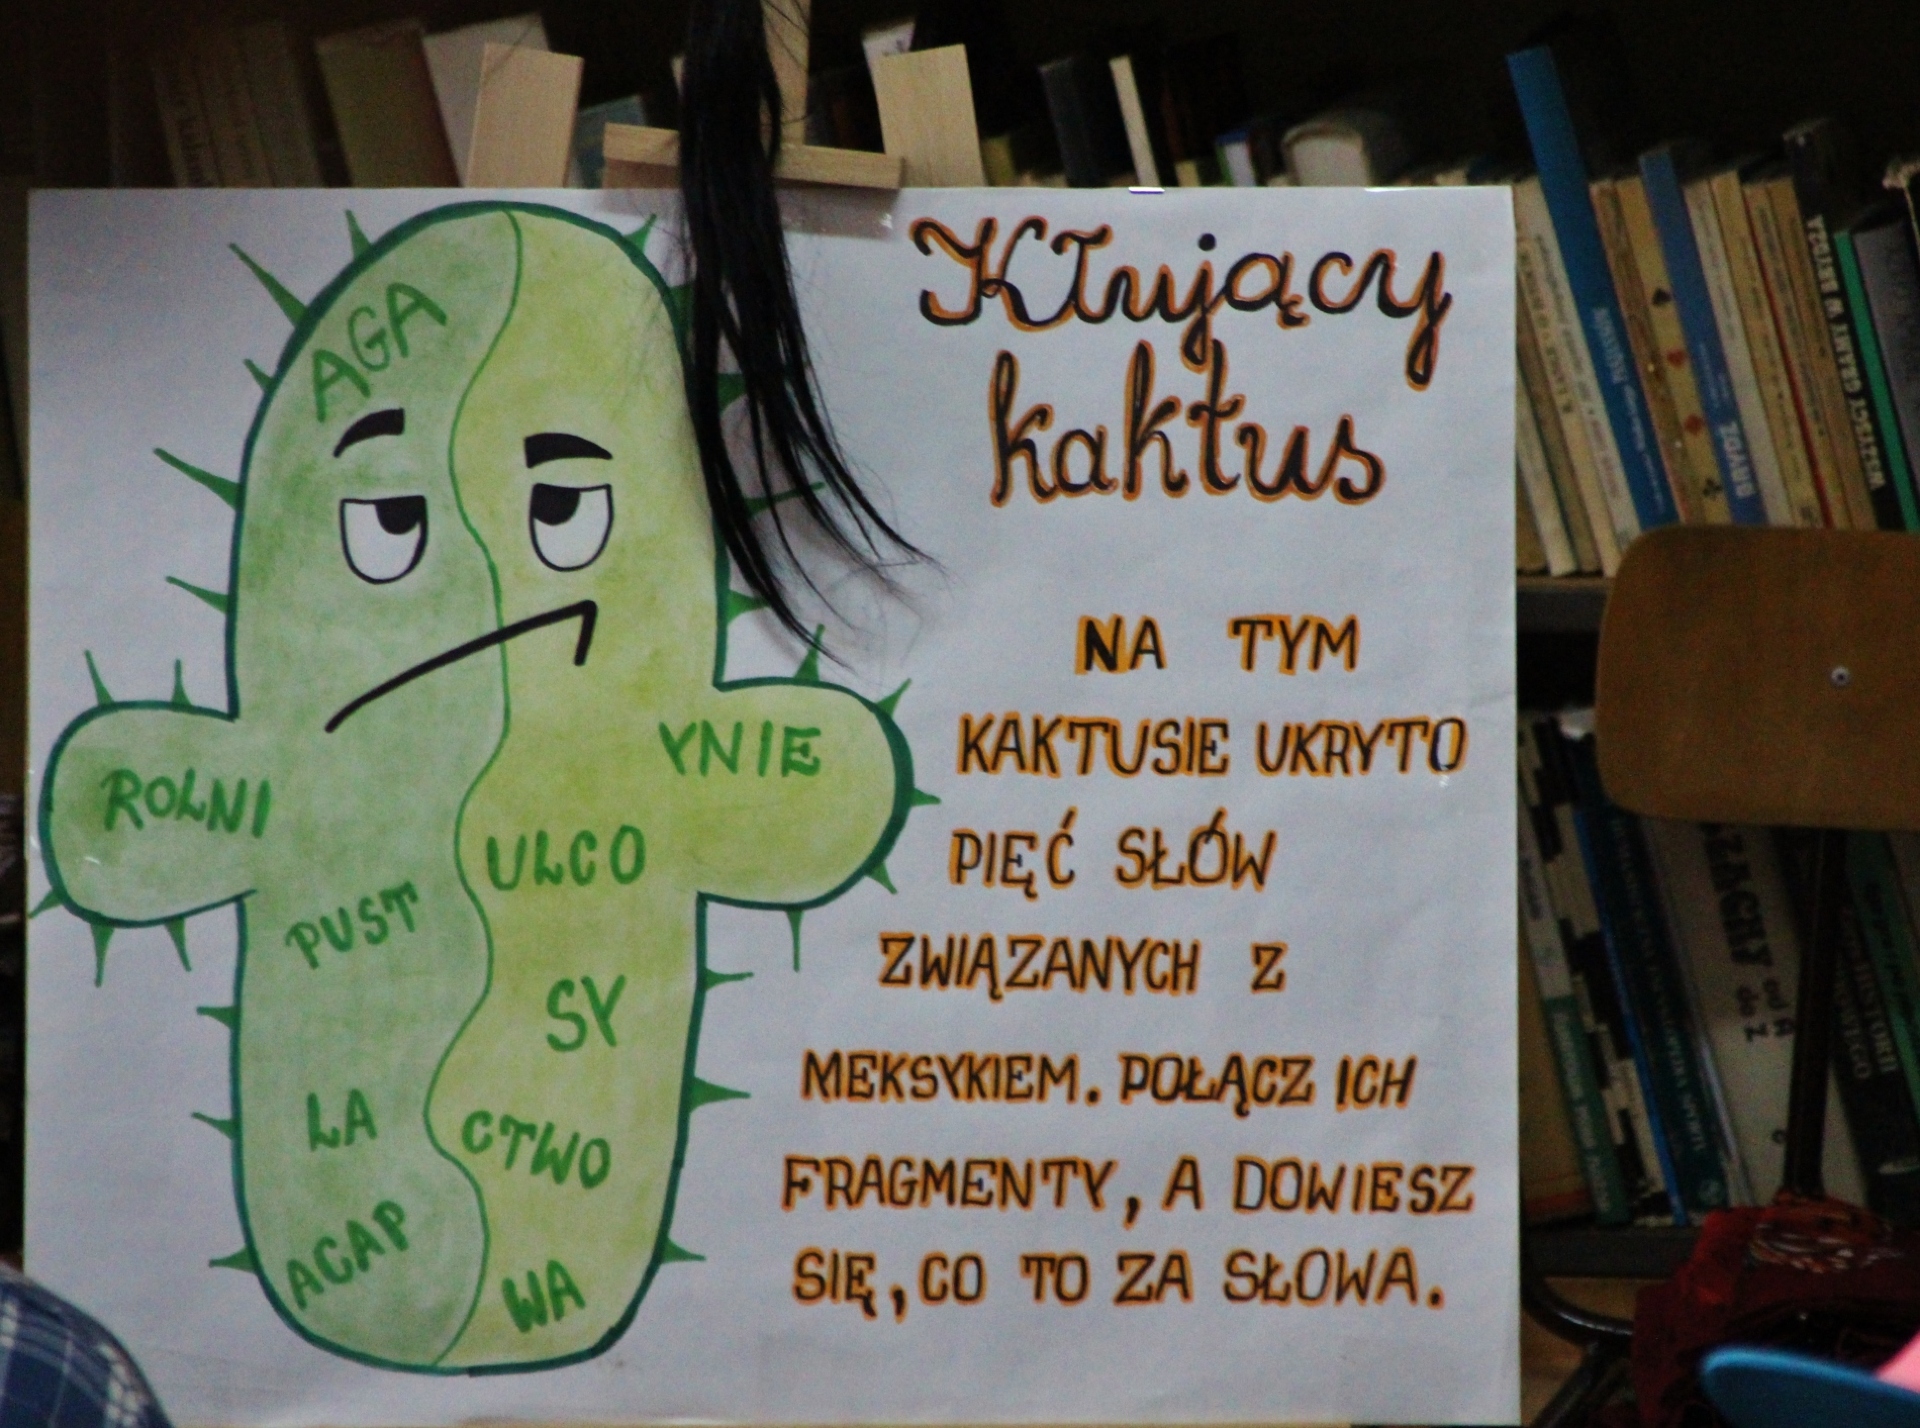 Kłujący
kaktus
NA TYM
KAKTUSIE UKRYTO
PIĘĆ SŁÓW
ZWIĄZANYCH Z
MEKSYKIEM. POŁĄCZ ICH
FRAGMENTY, A DOWIESZ
SIĘ, CO TO ZA SŁOWA.
AGA
ROLNI
PUST
LA
ACAP
YNIE
ULCO
SY
CTWO
WA